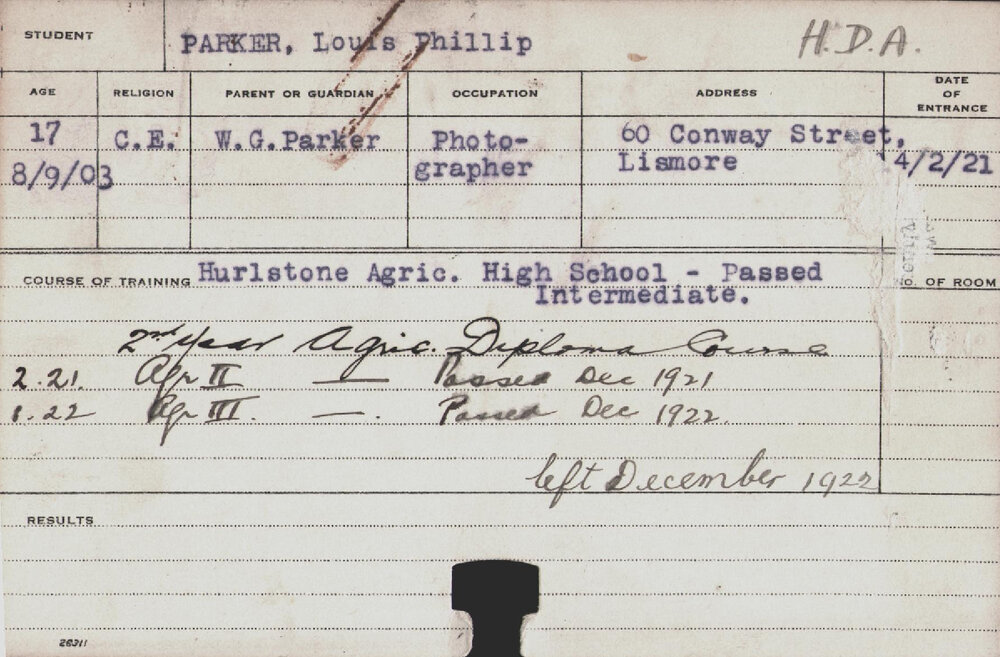 STUDENT PARKER, Louis Phillip H.D.A.
AGE RELIGION PARENT OR GUARDIAN OCCUPATION ADDRESS DATE OF ENTRANCE
17 C.E. W.G.Parker Photo- 60 Conway Street,
8/9/03 grapher Lismore 4/2/21
COURSE OF TRAINING Hurlstone Agric. High School - Passed
Intermediate.
No. OF ROOM
2nd Year Agric. Diploma Course
2.21. Agr II — Passed Dec 1921
1.22 Agr III. —. Passed Dec 1922.
left December 1922
RESULTS
26311